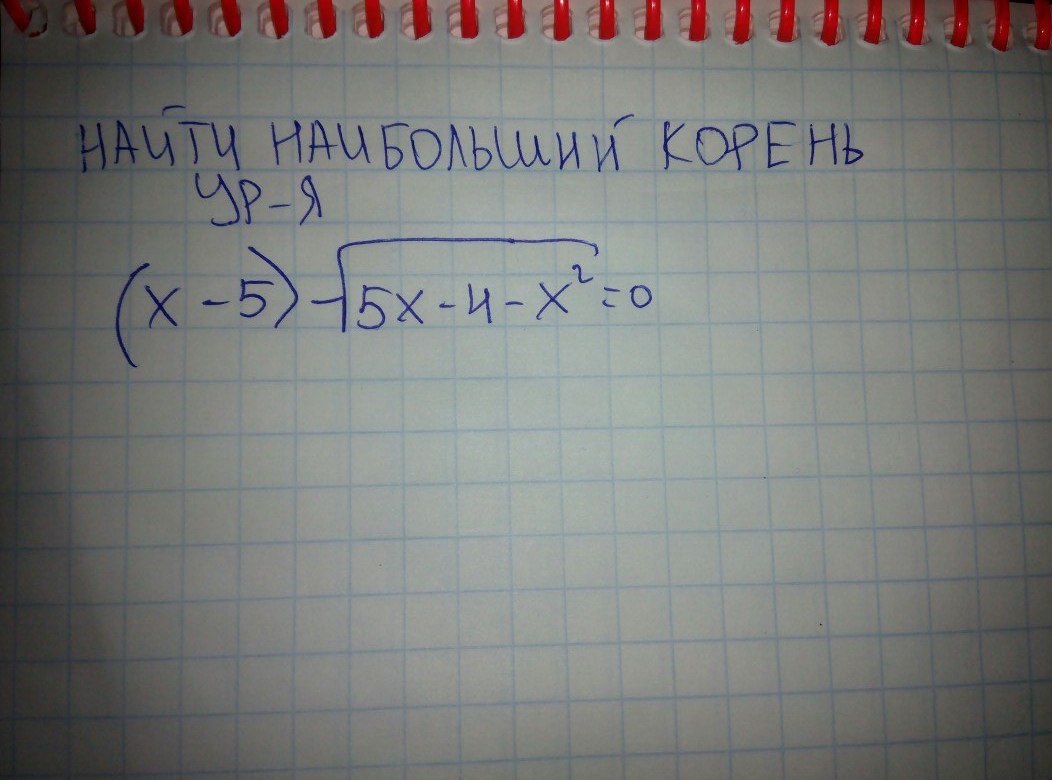 НАЙТИ НАИБОЛЬШИЙ КОРЕНЬ
УР-Я
(x-5)-√5x-4-x²=0